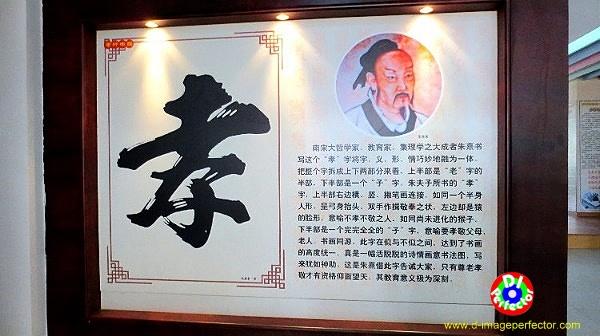 孝
南宋大哲学家，教育家，集理学之大成者朱熹书
写这个“孝”字将字、义、形、情巧妙地融为一体，
把整个字拆成上下两部分来看，上半部是“老”字的
半部，下半部是一个“子”字，朱夫子所书的“孝”
字，上半部右边横、竖、撇笔画连接，如同一个半身
人形，呈弓身抬头，双手作揖敬奉之状，左边却是猿
的脸形，意喻不孝不敬之人，如同尚未进化的猴子，
下半部是一个完完全全的“子”字，意喻要孝敬父母、
老人，书画同源，此字在似与不似之间，达到了书画
的高度统一，真是一幅活脱脱的诗情画意书法图，写
来犹如神助，这是朱熹借此字告诫大家，只有尊老孝
敬才有资格仰面望天，其教育意义极为深刻。
DI
Perfector
www.d-imageperfector.com